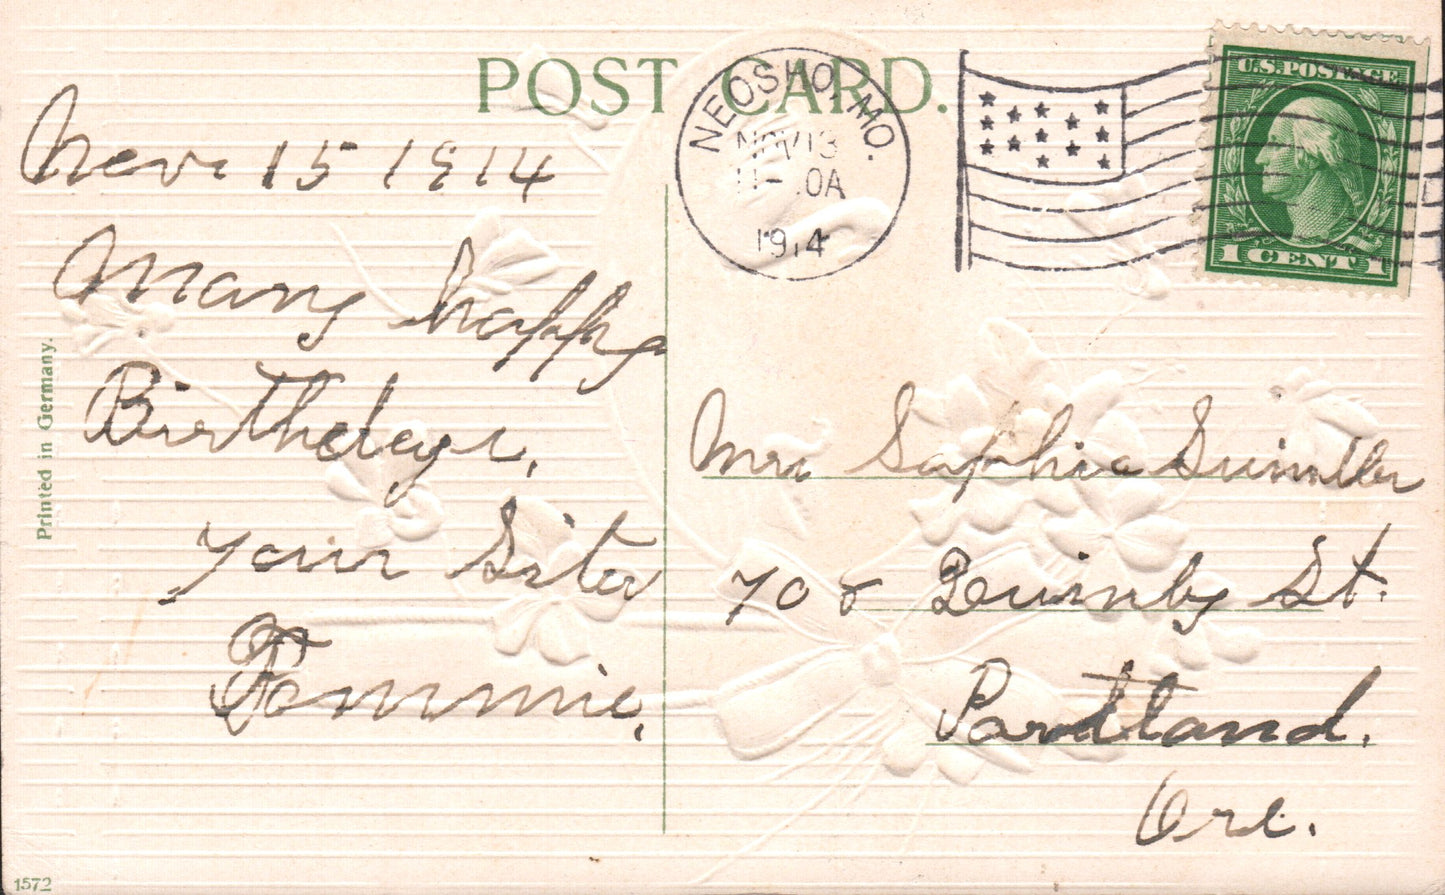 POST CARD.
NEOSHO, MO.
NOV 13
11- 0A
1914
U.S. POSTAGE
1 CENT 1
Nov. 15 1914
Many happy
Birthdays,
your Sister
Tommie,
Mrs Sophie
Quimby St.
Portland.
Ore.
Printed in Germany.
1572